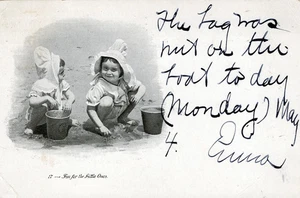 The bag was
not on the
boat to day
(Monday) May
4. Emma
17.— Fun for the Little Ones.